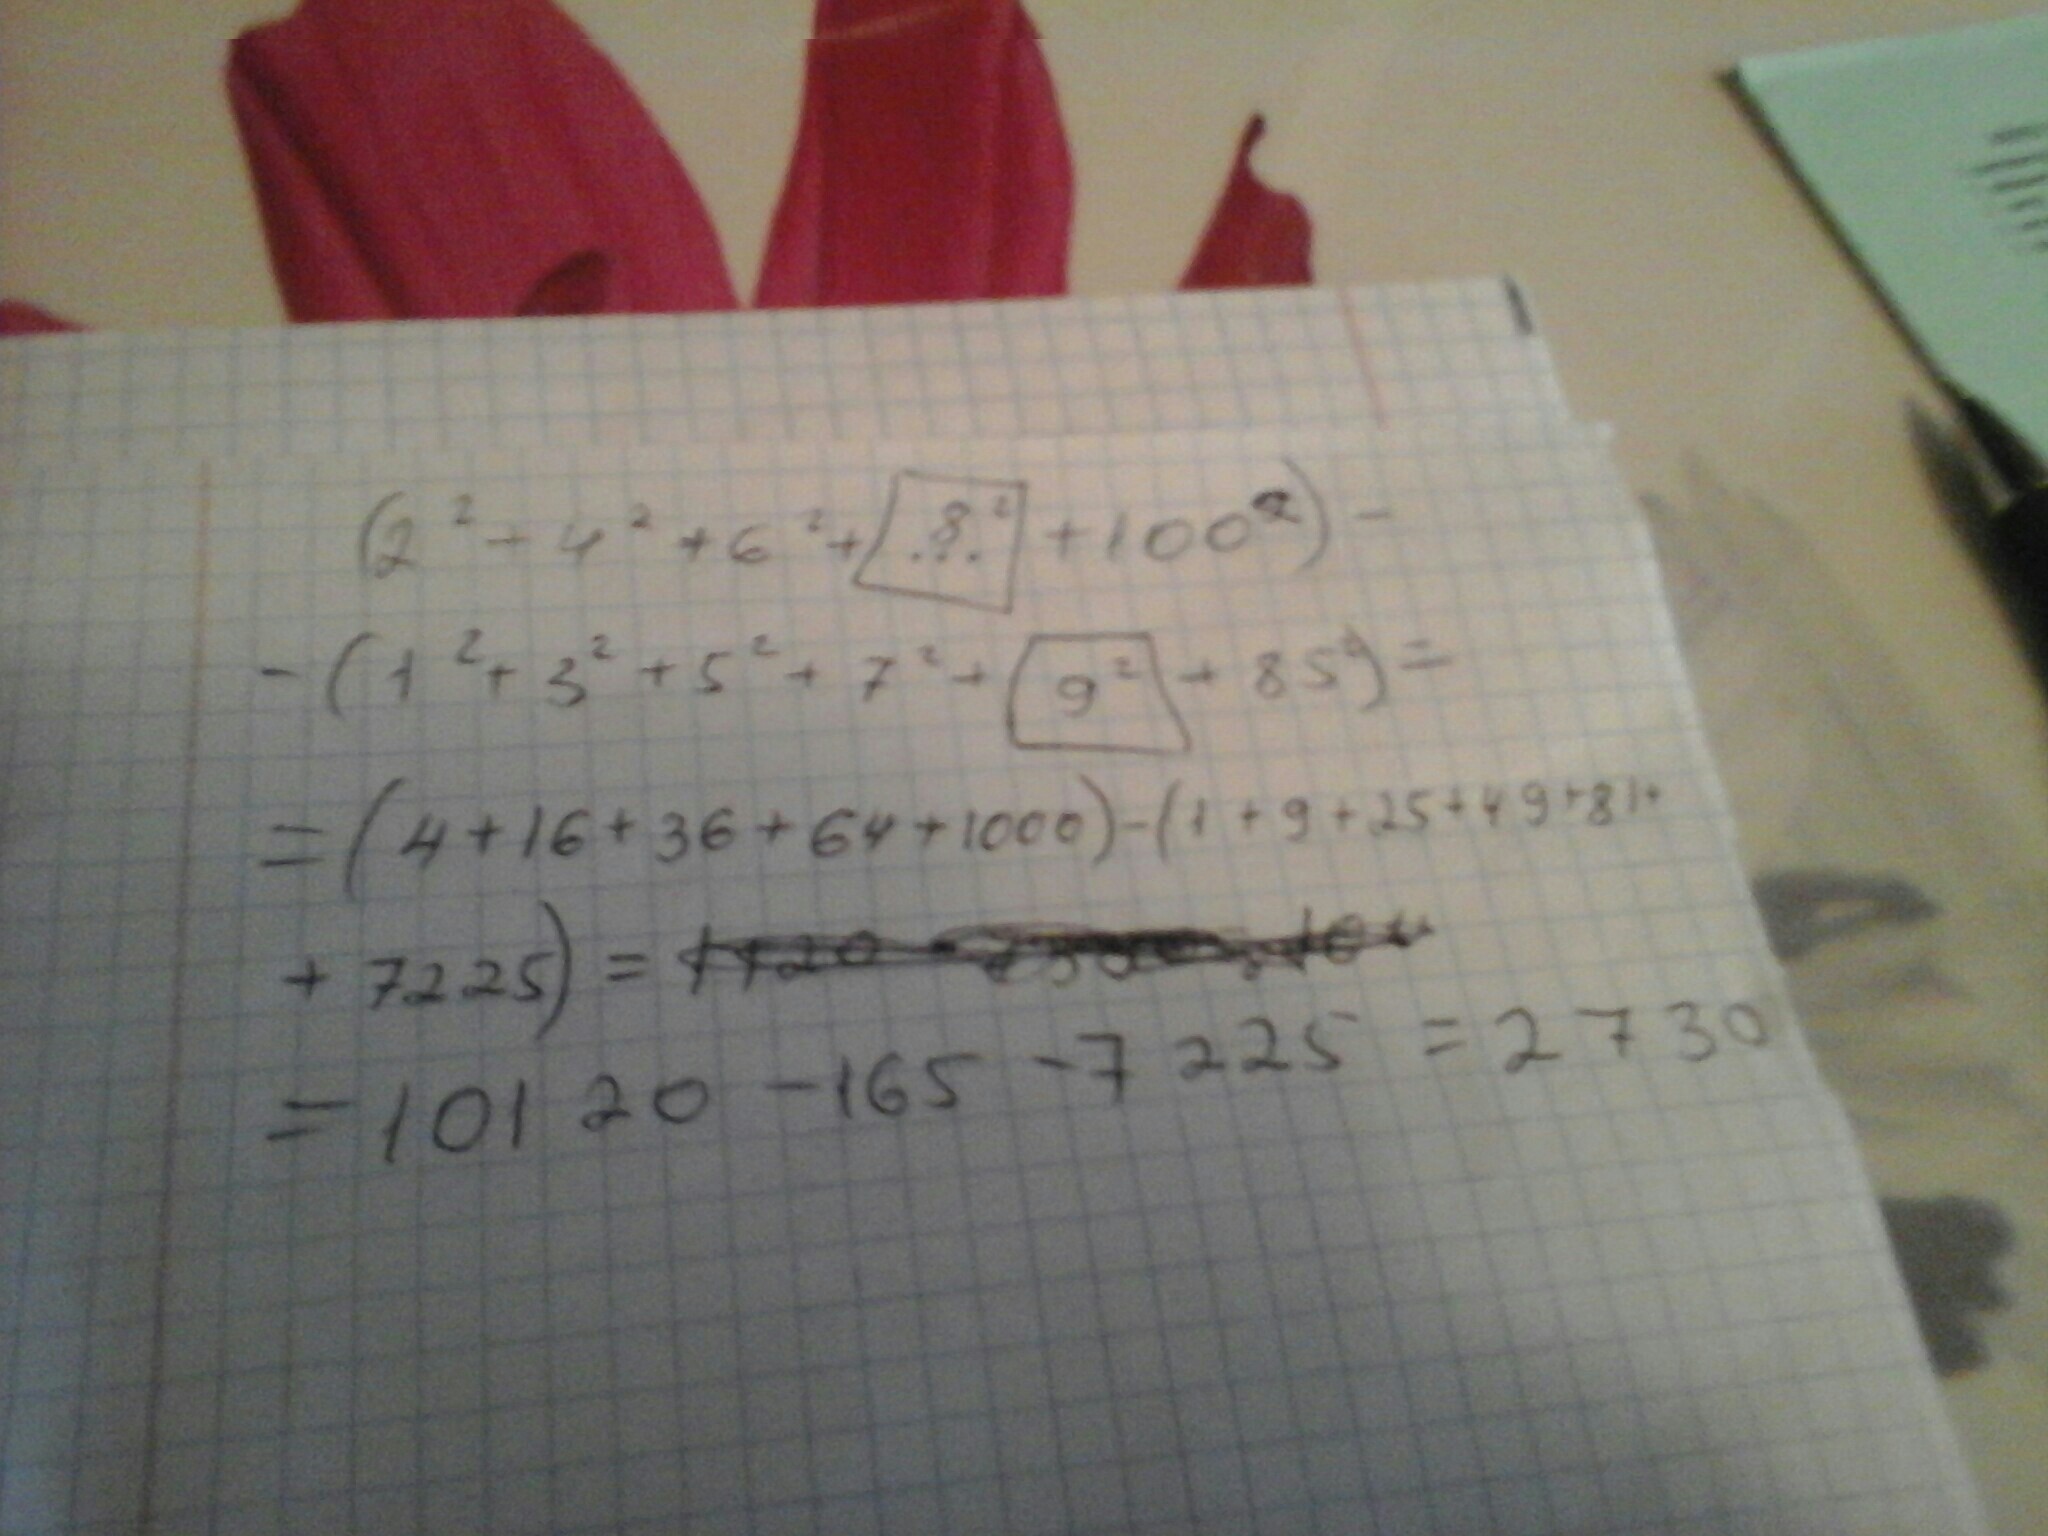 (2² + 4² + 6² + 8² ... + 100²) -
- (1² + 3² + 5² + 7² + 9² + 85²) =
= (4 + 16 + 36 + 64 + 1000) - (1 + 9 + 25 + 49 + 81 +
+ 7225) =
= 10120 - 165 - 7225 = 2730